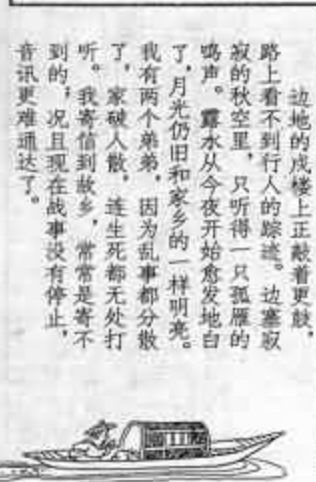 边地的戍楼上正敲着更鼓，
路上看不到行人的踪迹。边塞寂
寂的秋空里，只听得一只孤雁的
鸣声。露水从今夜开始愈发地白
了，月光仍旧和家乡的一样明亮。
我有两个弟弟，因为乱事都分散
了，家破人散，连生死都无处打
听。我寄信到故乡，常常是寄不
到的；况且现在战事没有停止，
音讯更难通达了。